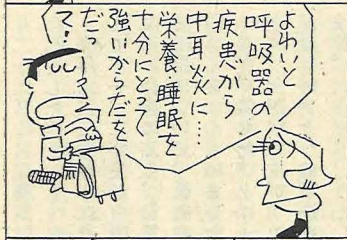 よわいと
呼吸器の
疾患から
中耳炎に…
栄養・睡眠を
十分にとって
強いからだを
だっ
て!